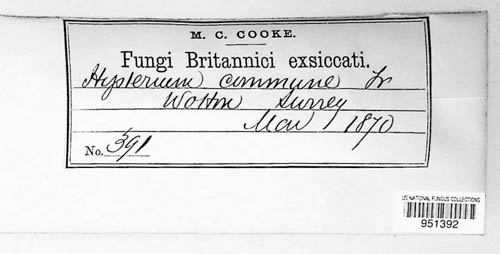 M. C. COOKE.
Fungi Britannici exsiccati.
Hysterium commune Fr
Wotton Surrey
Mar 1870
No. 391
US NATIONAL FUNGUS COLLECTIONS
951392